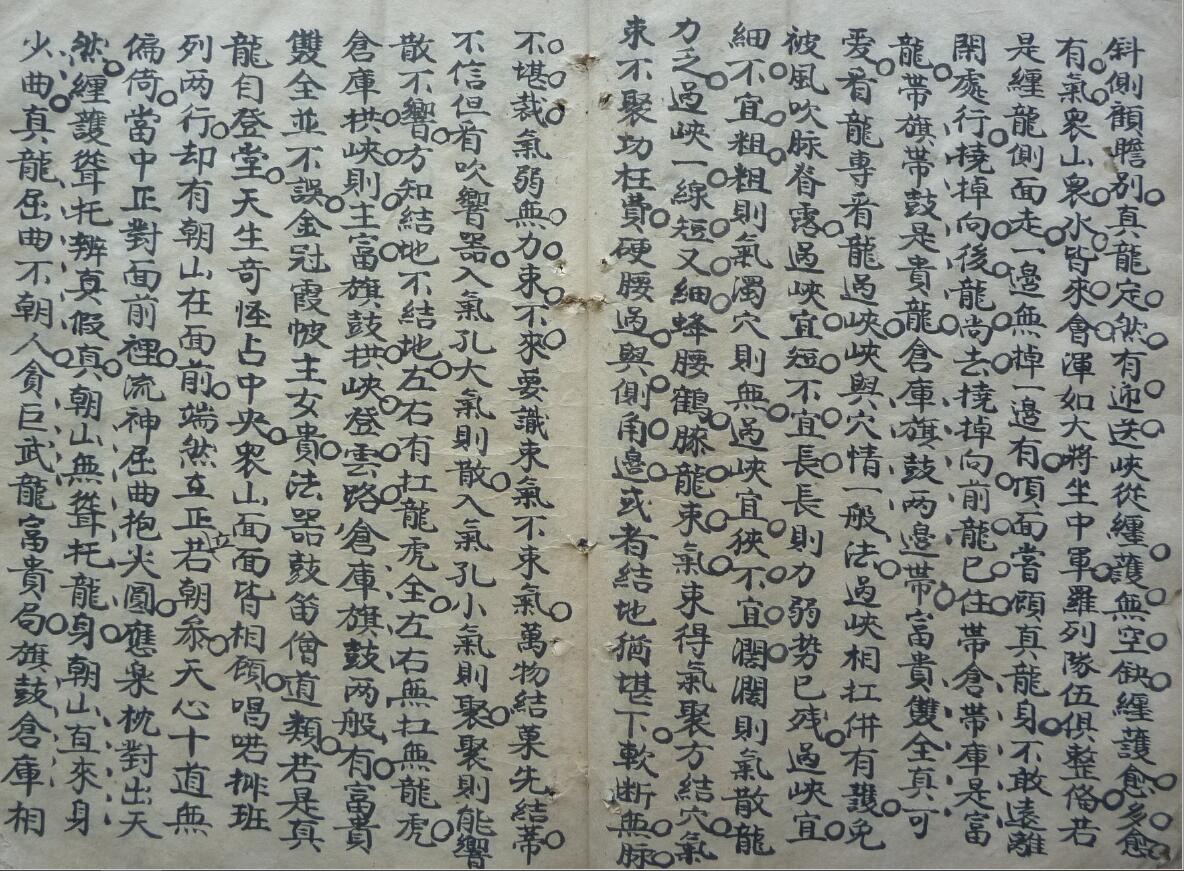 斜側顧瞻別真龍定然有迎送峽從纏護無空缺纏護愈多愈
有氣衆山衆水皆來會渾如大將坐中軍羅列隊伍俱整俻若
是纏龍側面走一邊無掉一邊有頂面當顧真龍身不敢遠離
閑處行撓掉向後龍尚去撓掉向前龍已住帶倉帶庫是富
龍帶旗帶鼓是貴龍倉庫旗鼓两邊帶富貴雙全真可
愛看龍專看龍過峽峽與穴情一般法過峽相扛併有護免
被風吹脉脊露過峽宜短不宜長長則力弱势已残過峽宜
細不宜粗粗則氣濁穴則無過峽宜狹不宜濶濶則氣散龍
力乏過峽一線短又細蜂腰鶴膝龍束氣束得氣聚方結穴氣
束不聚功枉費硬腰過與側角邊或者結地猶堪下軟断無脉
不堪裁氣弱無力束不來要識束氣不束氣萬物結菓先結蒂
不信但看吹響器入氣孔大氣則散入氣孔小氣則聚聚則能響
散不響方知結地不結地左右有扛龍虎全左右無扛無龍虎
倉庫拱峽則主富旗鼓拱峽登雲路倉庫旗鼓两般有富貴
雙全並不誤金冠霞帔主女貴法器鼓笛僧道類若是真
龍自登堂天生奇怪占中央衆山面面皆相顧唱喏排班
列两行却有朝山在面前端然立正若立朝叅天心十道無
偏倚當中正對面前裡流神屈曲抱尖圓應案枕對出天
然纏護聳托辨真假真朝山無聳托龍身朝山直來身
少曲真龍屈曲不朝人貪巨武龍富貴局旗鼓倉庫相